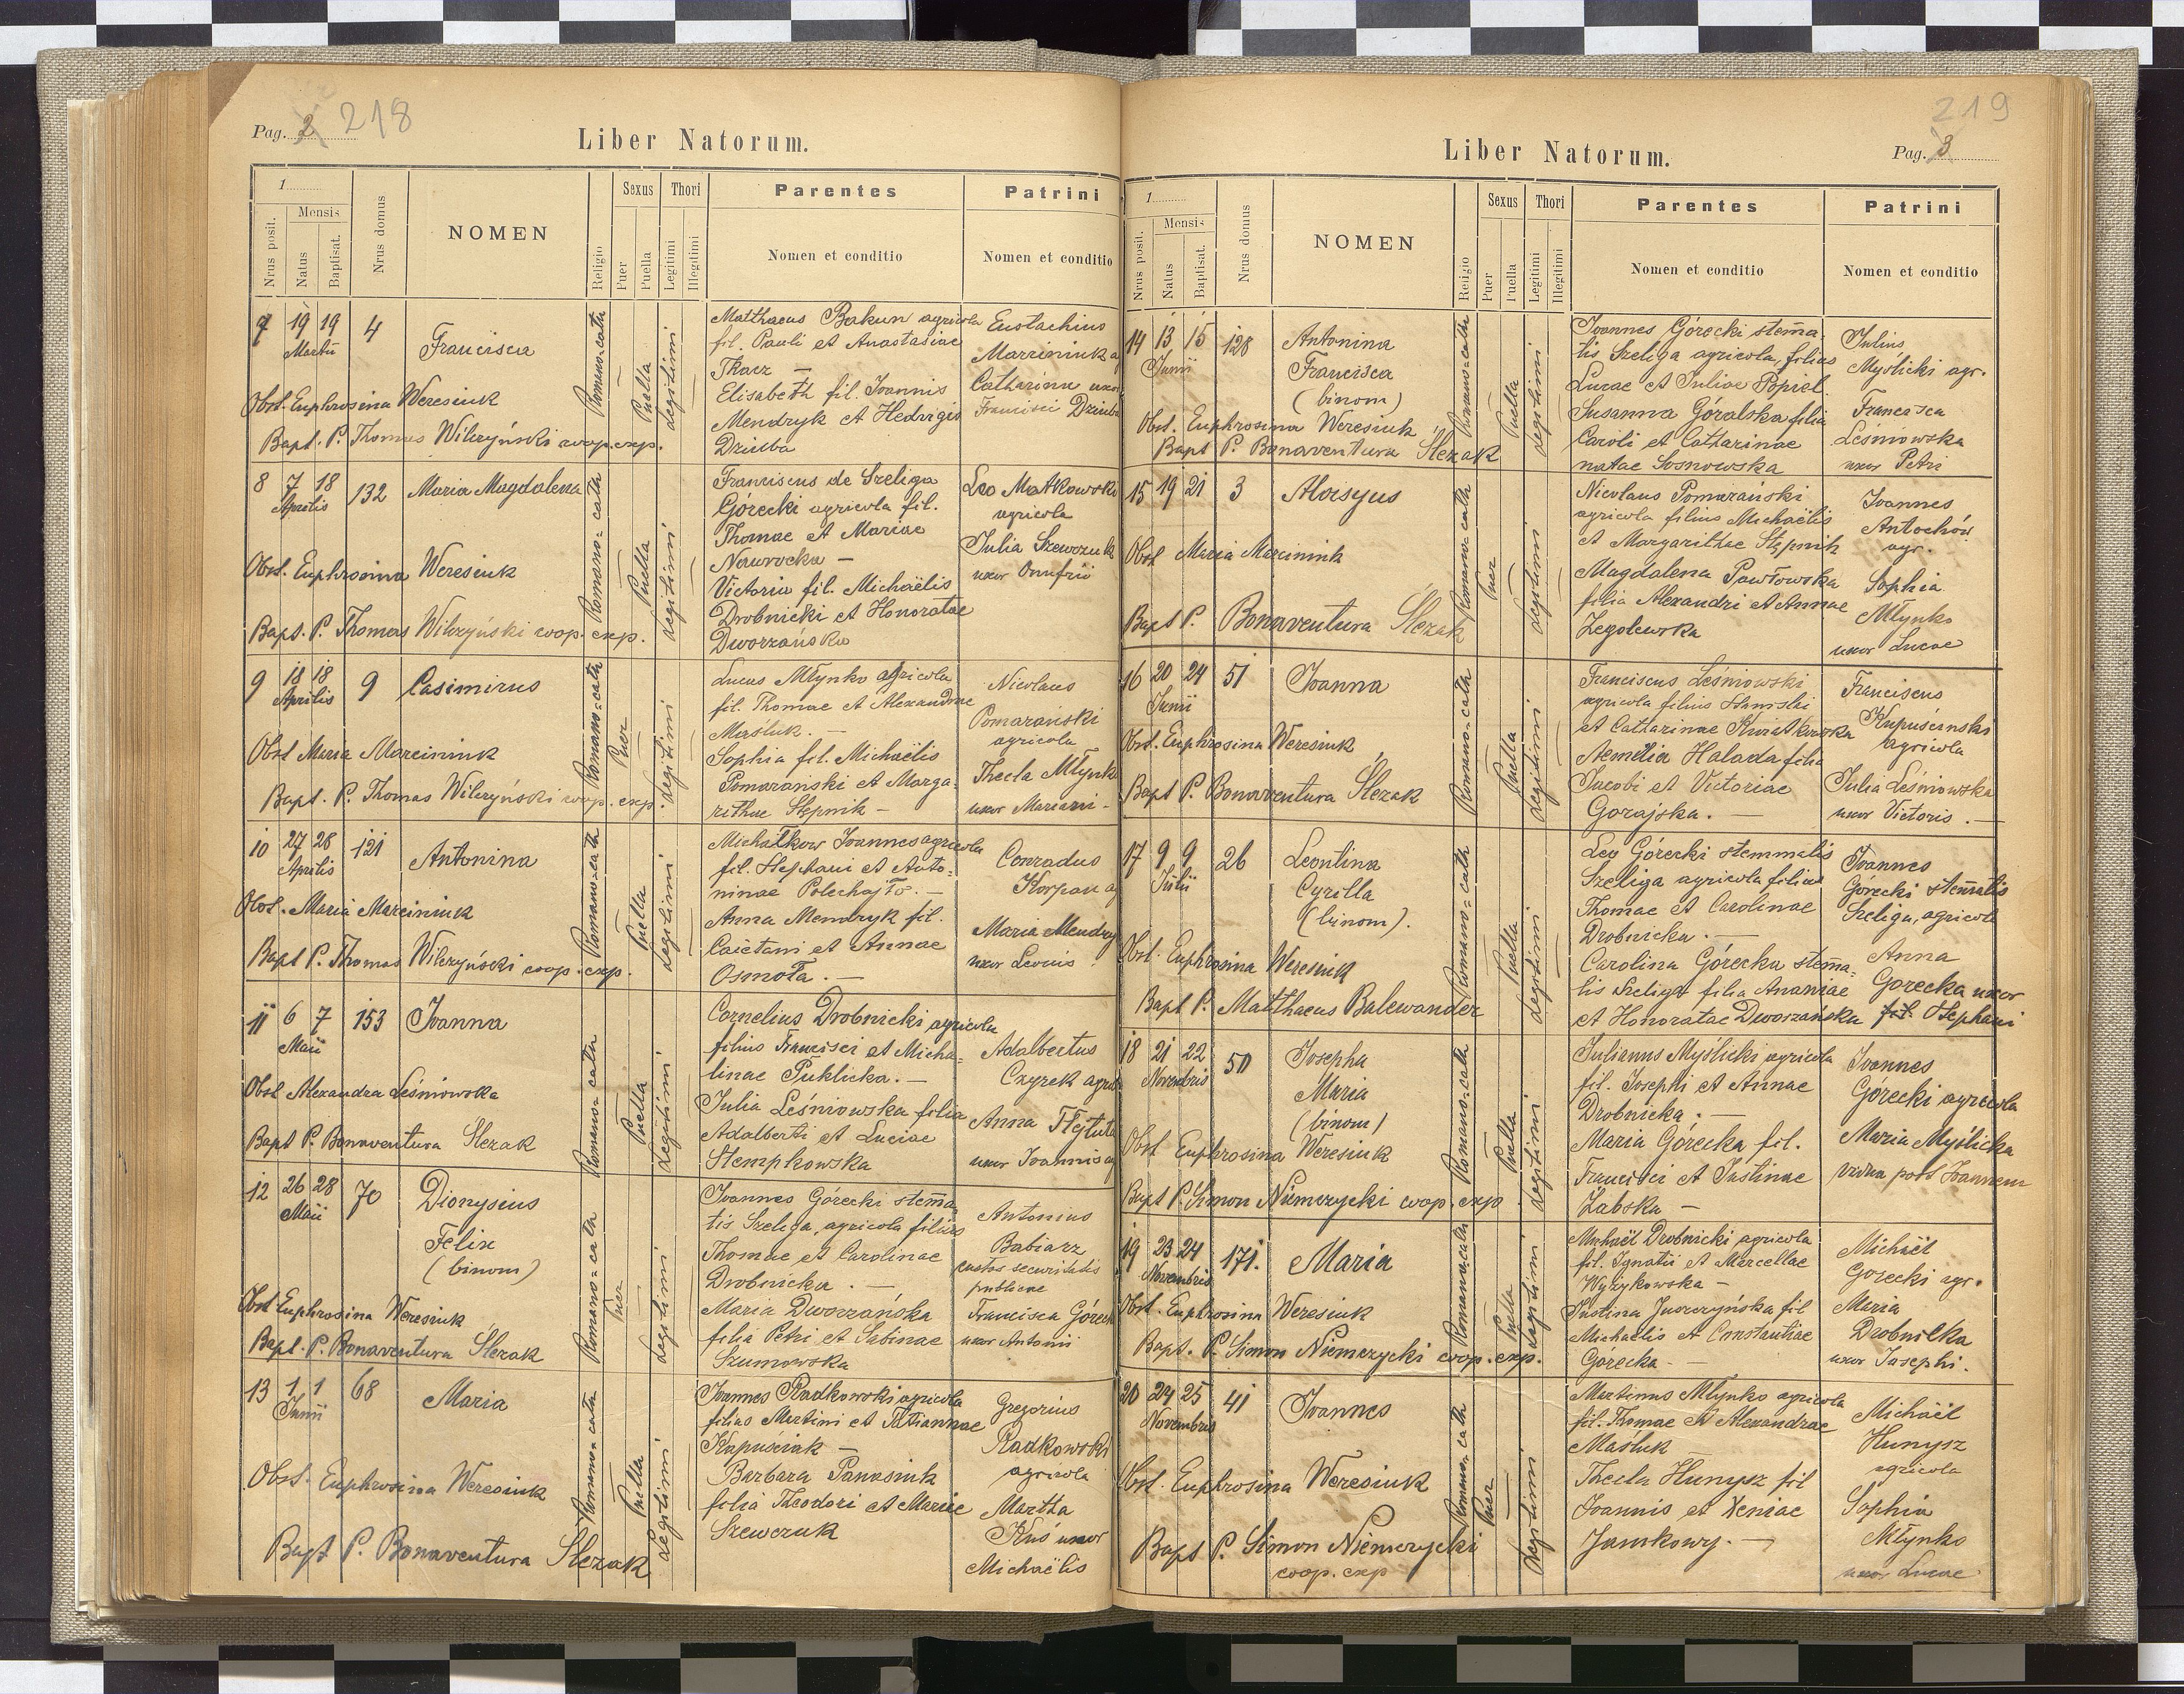 Pag. 2 218
Liber Natorum.
1
Nrus posit.
Mensis
Natus
Baptisat.
Nrus domus
NOMEN
Religio
Sexus
Puer
Puella
Thori
Legitimi
Illegitimi
Parentes
Nomen et conditio
Patrini
Nomen et conditio
7 19 19 4 Francisca
Martii
Obst. Euphrosina Weresiuk
Bapt. P. Thomas Wilczyński coop. exp.
Romano=cath
Puella
Legitimi
Matthaeus Bakun agricola
fil. Pauli et Anastasiae
Tkacz —
Elisabeth fil. Joannis
Mendryk et Hedvigis
Dziuba
Eustachius
Marciniuk a
Catharina uxor
Francisci Dziuba
8 7 18 132 Maria Magdalena
Aprilis
Obst. Euphrosina Weresiuk
Bapt. P. Thomas Wilczyński coop. exp.
Romano=cath
Puella
Legitimi
Franciscus de Szeliga
Górecki agricola fil.
Thomae et Mariae
Nawrocka —
Victoria fil. Michaëlis
Drobnicki et Honoratae
Dworzańska
Leo Matkowski
agricola
Julia Szewczuk
uxor Onufrii
9 18 18 9 Casimirus
Aprilis
Obst Maria Marciniuk
Bapt. P. Thomas Wilczyński coop. exp.
Romano=cath
Puer
Legitimi
Lucas Młynko agricola
fil. Thomae et Alexandrae
Maśluk. —
Sophia fil. Michaëlis
Pomarański et Marga=
rithae Stępnik —
Nicolaus
Pomarański
agricola
Thecla Młynk
uxor Mariani -
10 27 28 121 Antonina
Aprilis
Obst. Maria Marciniuk
Bapt P. Thomas Wilczyński coop. exp.
Romano=cath
Puella
Legitimi
Michałkow Joannes agricola
fil. Stephani et Anto=
ninae Polechajło. —
Anna Mendryk fil.
Caietani et Annae
Osmoła. —
Conradus
Korpan ag
Maria Mendry
uxor Leonis
11 6 7 153 Joanna
Maii
Obst Alexandra Leśniowska
Bapt P. Bonaventura Ślezak
Romano=cath
Puella
Legitimi
Cornelius Drobnicki agricola
filius Francisci et Micha=
linae Puklicka. —
Julia Leśniowska filia
Adalberti et Luciae
Stempkowska
Adalbertus
Czyrek agri
Anna
uxor Joannis ag
12 26 28 70 Dionysius
Maii
Felix
(binom)
Obst Euphrosina Weresiuk
Bapt. P. Bonaventura Ślezak
Romano=cath
Puer
Legitimi
Joannes Górecki stem̄a
tis Szeliga, agricola filius
Thomae et Carolinae
Drobnicka. —
Maria Dworzańska
filia Petri et Sabinae
Szumowska
Antonius
Babiarz
custos securitatis
publicae
Francisca Góreck
uxor Antonii
13 1 1 68 Maria
Junii
Obst. Euphrosina Weresiuk
Bapt P. Bonaventura Ślezak
Romano=cath
Puella
Legitimi
Joannes Radkowski agricola
filius Martini et Tatiannae
Kapuściak —
Barbara Panasiuk
filia Theodori et Mariae
Szewczuk
Gregorius
Radkowski
agricola
Martha
Kuś uxor
Michaëlis
219
Liber Natorum.
Pag. 3
1
Nrus posit.
Mensis
Natus
Baptisat.
Nrus domus
NOMEN
Religio
Sexus
Puer
Puella
Thori
Legitimi
Illegitimi
Parentes
Nomen et conditio
Patrini
Nomen et conditio
14 13 15 128 Antonina
Junii
Francisca
(binom)
Obst. Euphrosina Weresiuk
Bapt P. Bonaventura Ślezak
Romano=cath
Puella
Legitimi
Joannes Górecki stem̄a=
tis Szeliga agricola, filius
Lucae et Juliae Popiel.
Susanna Góralska filia
Caroli et Catharinae
natae Sosnowska
Julius
Myślicki agr.
Francisca
Leśniowska
uxor Petri
15 19 21 3 Aloisyus
Obst Maria Marciniuk
Bapt P. Bonaventura Ślezak
Romano=cath
Puer
Legitimi
Nicolaus Pomarański
agricola filius Michaëlis
et Margarithae Stępnik
Magdalena Pawłowska
filia Alexandri et Annae
Zegolewska
Joannes
Antochów
agr.
Sophia
Młynko
uxor Lucae
16 20 24 51 Joanna
Junii
Obst. Euphrosina Weresiuk
Bapt P. Bonaventura Ślezak
Romano=cath
Puella
Legitimi
Franciscus Leśniowski
agricola filius Stanislai
et Catharinae Kwiatkowska
Aemilia Halada filia
Jacobi et Victoriae
Gorajska. —
Franciscus
Kapuścinski
agricola
Julia Leśniowska
uxor Victoris. —
17 9 9 26 Leontina
Julii
Cyrilla
(binom).
Obst. Euphrosina Weresiuk
Bapt P. Matthaeus Balewander
Romano=cath
Puella
Legitimi
Leo Górecki stemmatis
Szeliga agricola filius
Thomae et Carolinae
Drobnicka. —
Carolina Górecka stem̄a=
tis Szeliga filia Ananiae
et Honoratae Dworzańska
Joannes
Górecki stem̄atis
Szeliga, agricola
Anna
Gorecka uxor
fil. Stephani
18 21 22 50 Josepha
Novembris
Maria
(binom)
Obst Euphrosina Weresiuk
Bapt P. Simon Niemczycki coop. exp
Romano=cath
Puella
Legitimi
Julianus Myślicki agricola
fil. Josephi et Annae
Drobnicka. —
Maria Górecka fil.
Francisci et Justinae
Zabska —
Joannes
Górecki agricola
Maria Myślicka
vidua post Joannem
19 23 24 171. Maria
Novembris
Obst. Euphrosina Weresiuk
Bapt. P. Simon Niemczycki coop. exp.
Romano=cath
Puella
Legitimi
Michaël Drobnicki agricola
fil. Ignatii et Marcellae
Wyżykowska —
Justina Juszczyńska fil
Michaëlis et Constantiae
Górecka -
Michaël
Gorecki agr.
Maria
Drobnicka
uxor Josephi.
20 24 25 41 Joannes
Novembris
Obst. Euphrosina Weresiuk
Bapt P. Simon Niemczycki
coop. exp
Romano=cath
Puer
Legitimi
Martinus Młynko agricola
fil. Thomae et Alexandrae
Maśluk —
Thecla Hunysz fil
Joannis et Xeniae
Jamkowy. —
Michaël
Hunysz
agricola
Sophia
Młynko
uxor Lucae